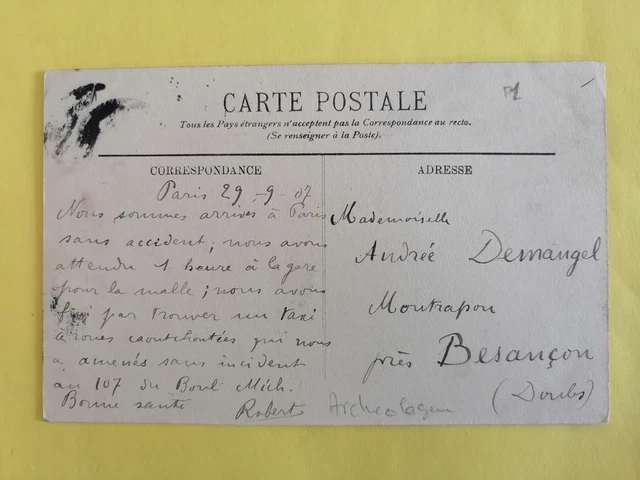 CARTE POSTALE
Tous les Pays étrangers n'acceptent pas la Correspondance au recto.
(Se renseigner à la Poste).
CORRESPONDANCE
Paris 29-9-07
Nous sommes arrivés à Paris
sans accident; nous avons
attendu 1 heure à la gare
pour la malle; nous avons
fini par trouver un taxi
à roues caoutchoutées qui nous
a amenés sans incident
au 107 du Boul Mich.
Bonne santé
Robert
ADRESSE
Mademoiselle
Andrée Demangel
Montrapon
près Besançon
(Doubs)